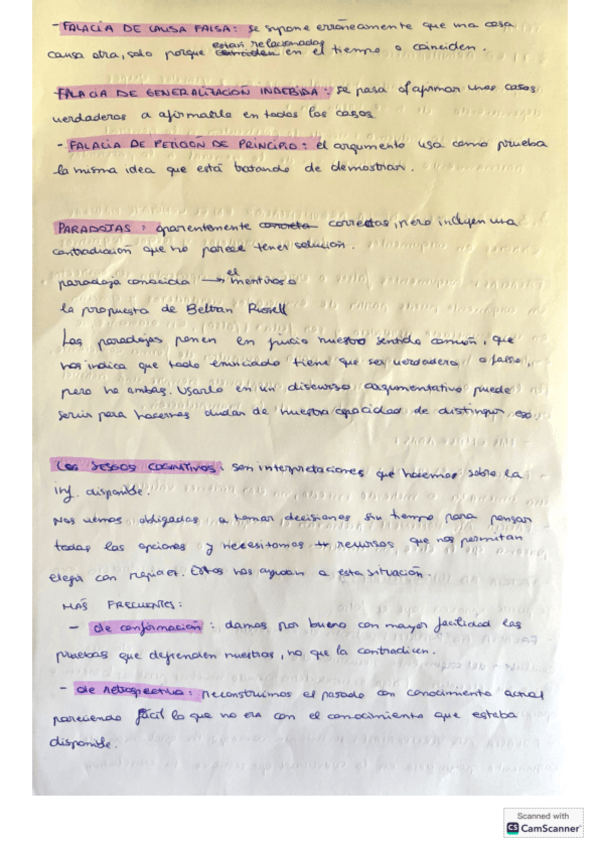 - FALACIA DE CAUSA FALSA: se supone erróneamente que una cosa
causa otra, solo porque están relacionados en el tiempo o coinciden.
FALACIA DE GENERALIZACIÓN INDEBIDA: se pasa de afirmar unos casos
verdaderos a afirmarlo en todos los casos
- FALACIA DE PETICIÓN DE PRINCIPIO: el argumento usa como prueba
la misma idea que está tratando de demostrar.
PARADOJAS: aparentemente concreta correctas, pero incluyen una
contradicción que no parece tener solución.
paradoja conocida → el mentiroso
la propuesta de Beltran Rusell
Las paradojas ponen en juicio nuestro sentido común, que
nos indica que todo enunciado tiene que ser verdadero o falso,
pero no ambas. Usarlo en un discurso argumentativo puede
servir para hacernos dudar de nuestra capacidad de distinguir eso
Los SESGOS COGNITIVOS: son interpretaciones que hacemos sobre la
inf. disponible.
Nos vemos obligados a tomar decisiones sin tiempo para pensar
todas las opciones y necesitamos recursos que nos permitan
elegir con rapidez. Estos nos ayudan a esta situación.
MÁS FRECUENTES:
- de confirmación: damos por bueno con mayor facilidad las
pruebas que defienden nuestros, no que la contradicen.
- de retrospectiva: reconstruimos el pasado con conocimiento actual
pareciendo fácil lo que no era con el conocimiento que estaba
disponible.
Scanned with
CS CamScanner